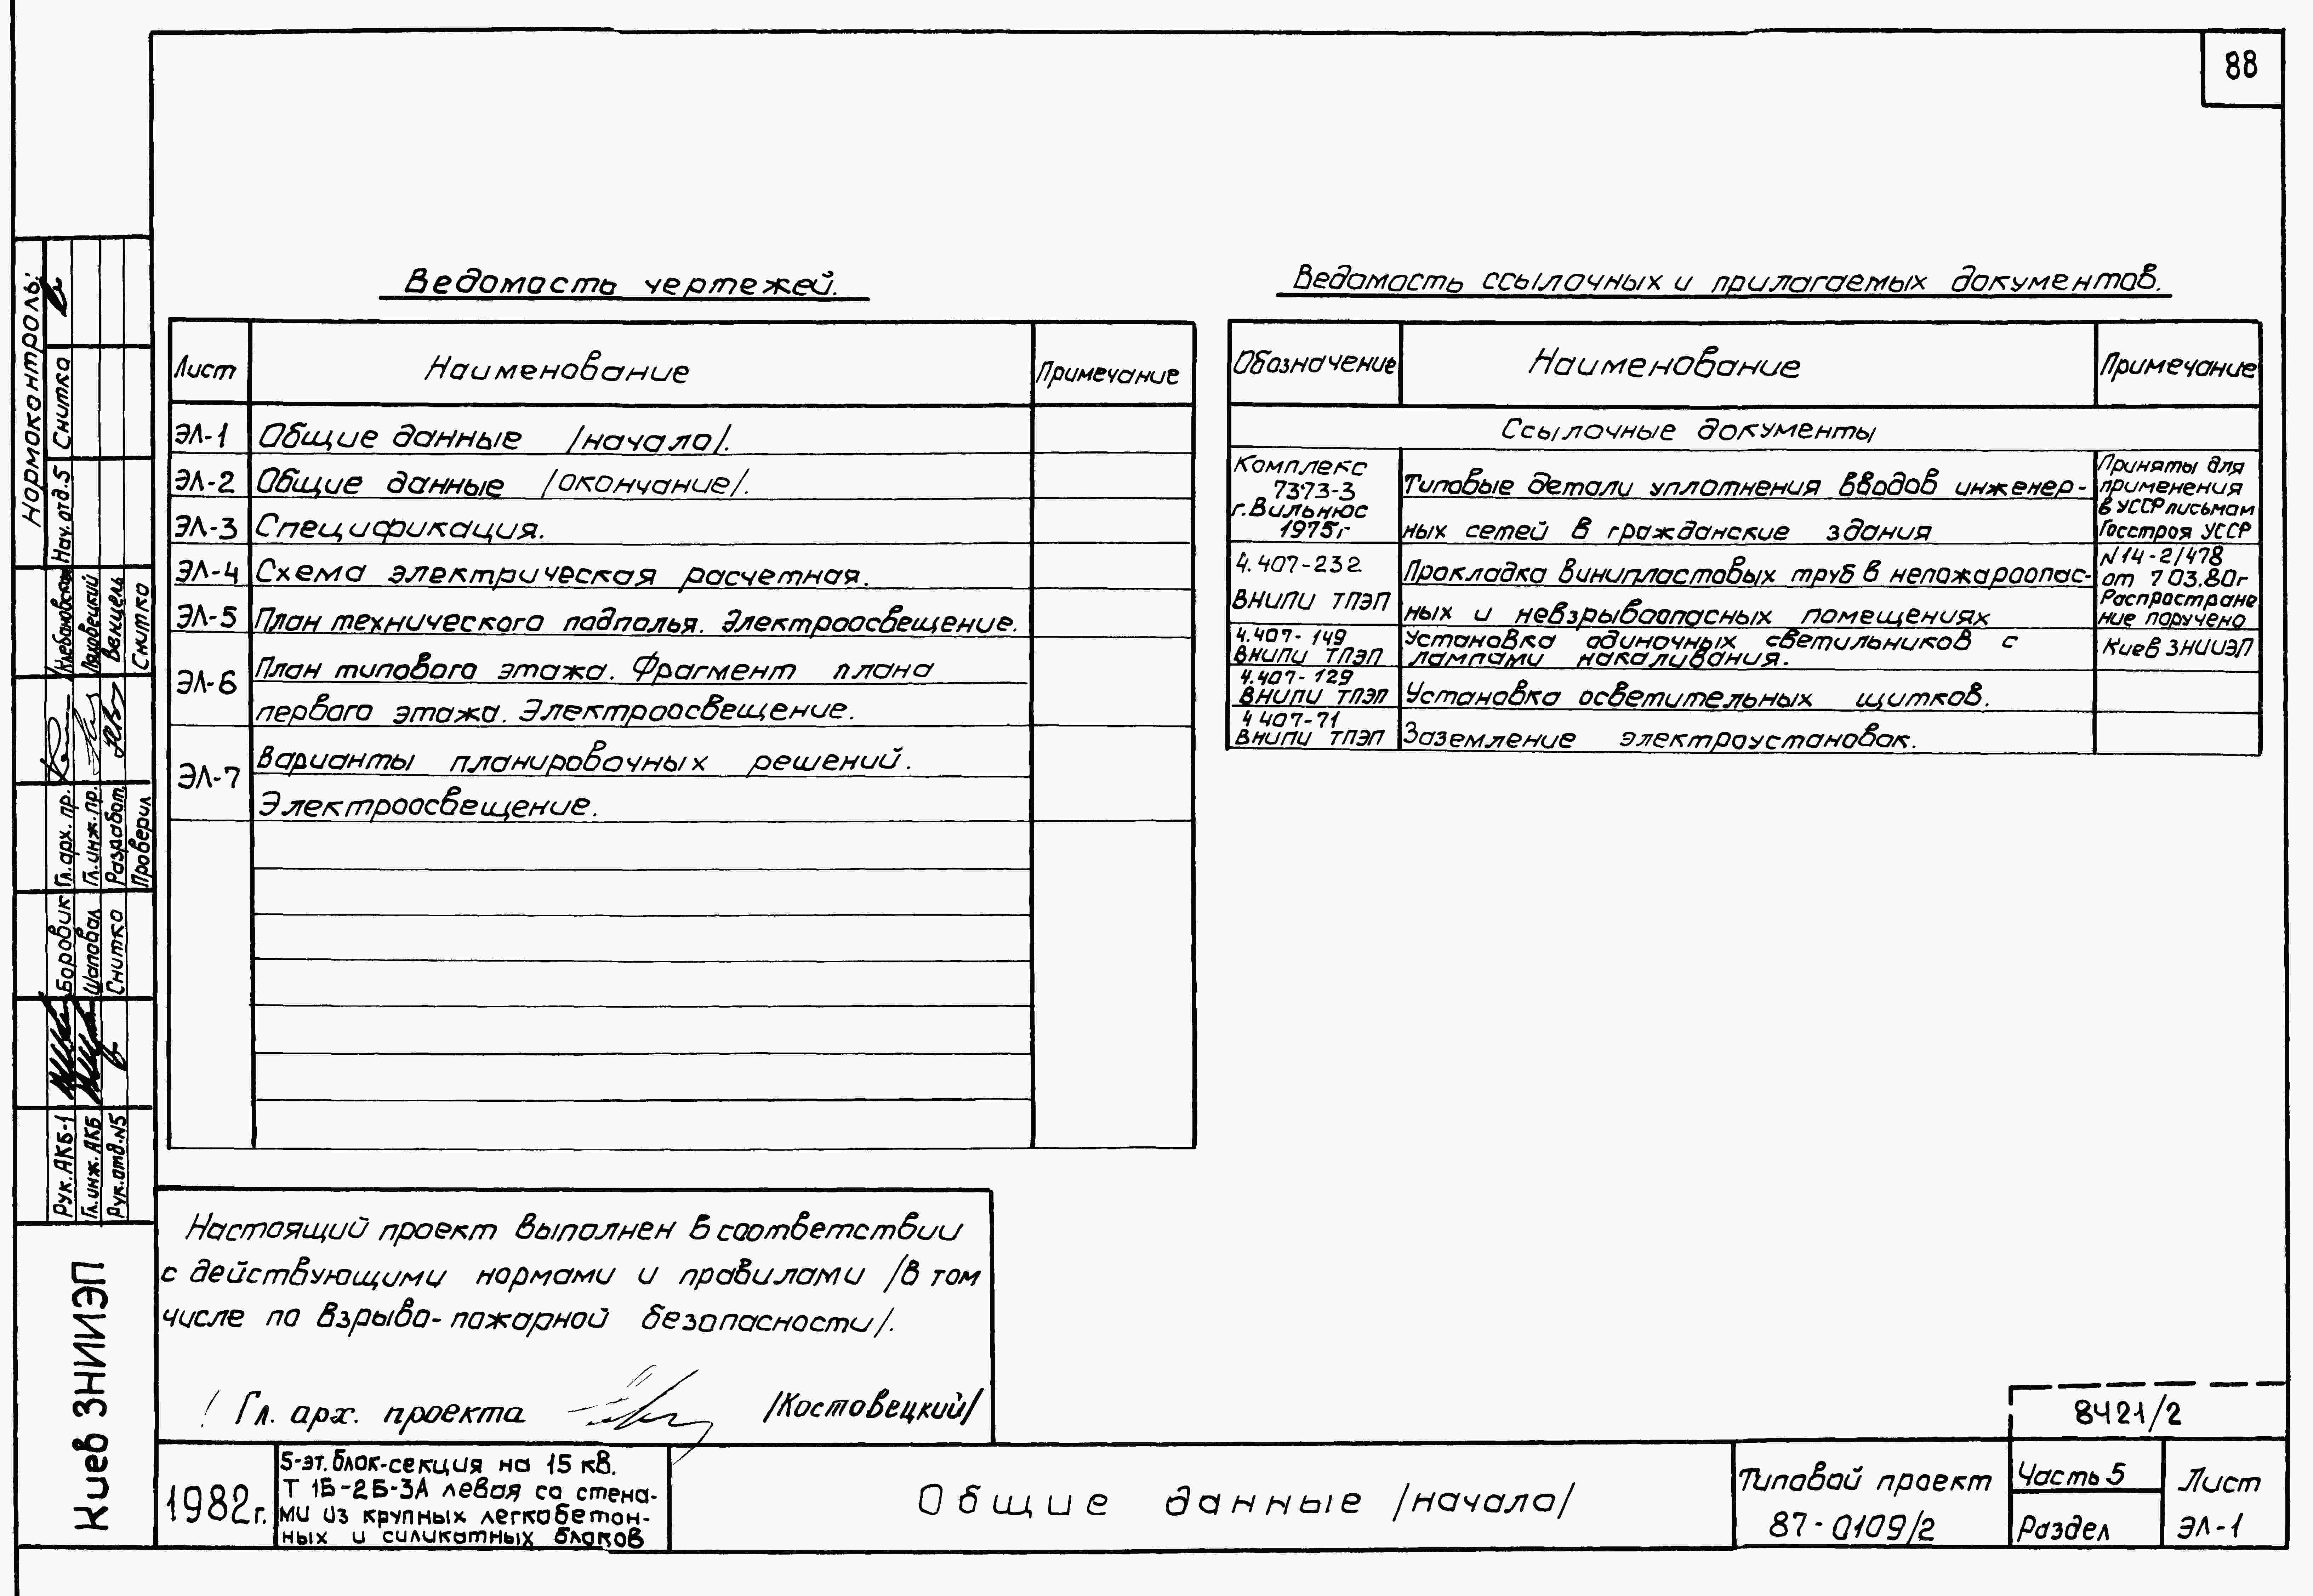 88
Ведомость чертежей.
Лист Наименование Примечание
ЭЛ-1 Общие данные /начало/.
ЭЛ-2 Общие данные /окончание/.
ЭЛ-3 Спецификация.
ЭЛ-4 Схема электрическая расчетная.
ЭЛ-5 План технического подполья. Электроосвещение.
ЭЛ-6 План типового этажа. Фрагмент плана
первого этажа. Электроосвещение.
ЭЛ-7 Варианты планировочных решений.
Электроосвещение.
Ведомость ссылочных и прилагаемых документов.
Обозначение Наименование Примечание
Ссылочные документы
Комплекс
7373-3
г.Вильнюс
1975г
Типовые детали уплотнения вводов инженер-
ных сетей в гражданские здания
4.407-232
ВНИПИ ТПЭП
Прокладка винипластовых труб в непожароопас-
ных и невзрывоопасных помещениях
4.407-149
ВНИПИ ТПЭП
Установка одиночных светильников с
лампами накаливания.
4.407-129
ВНИПИ ТПЭП
Установка осветительных щитков.
4 407-71
ВНИПИ ТПЭП
Заземление электроустановок.
Приняты для
применения
в УССР письмом
Госстроя УССР
N14-2/478
от 7 03.80г
Распростране
ние поручено
Киев ЗНИИЭП
Настоящий проект выполнен в соответствии
с действующими нормами и правилами /в том
числе по взрыво-пожарной безопасности/.
Гл. арх. проекта /Костовецкий/
Нормоконтроль:
Нач. отд.5 Снитко
Гл. арх. пр. Клебановская
Гл. инж. пр. Ляховецкий
Разработ. Венцель
Проверил Снитко
Рук. АКБ-1 Боровик
Гл. инж. АКБ Шаповал
Рук. отд. N5 Снитко
Киев ЗНИИЭП
1982г.
5-эт. блок-секция на 15 кв.
Т 1Б-2Б-3А левая со стена-
ми из крупных легкобетон-
ных и силикатных блоков
Общие данные /начало/
Типовой проект
87-0109/2
8421/2
Часть 5
Раздел
Лист
ЭЛ-1